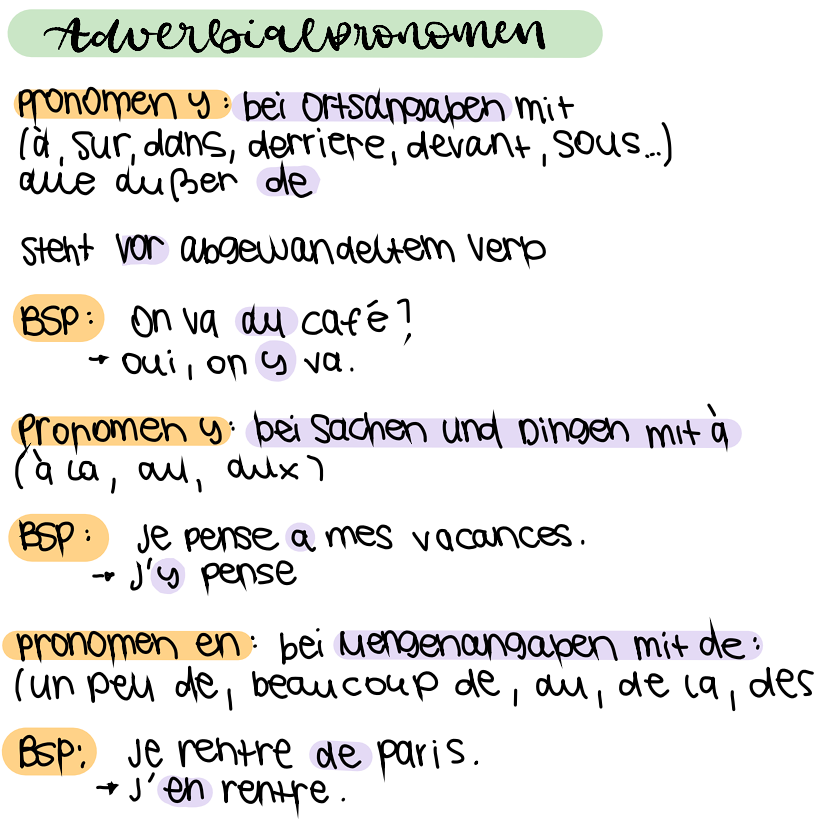 Adverbialpronomen
pronomen y: bei Ortsangaben mit
(à, sur, dans, derriere, devant, sous...)
alle außer de
steht vor abgewandeltem verb
BSP: On va au café?
→ oui, on y va.
pronomen y: bei Sachen und Dingen mit à
(à la, au, aux)
BSP: Je pense a mes vacances.
→ J'y pense
pronomen en: bei Mengenangaben mit de:
(un peu de, beaucoup de, du, de la, des
BSP: Je rentre de paris.
→ J'en rentre.